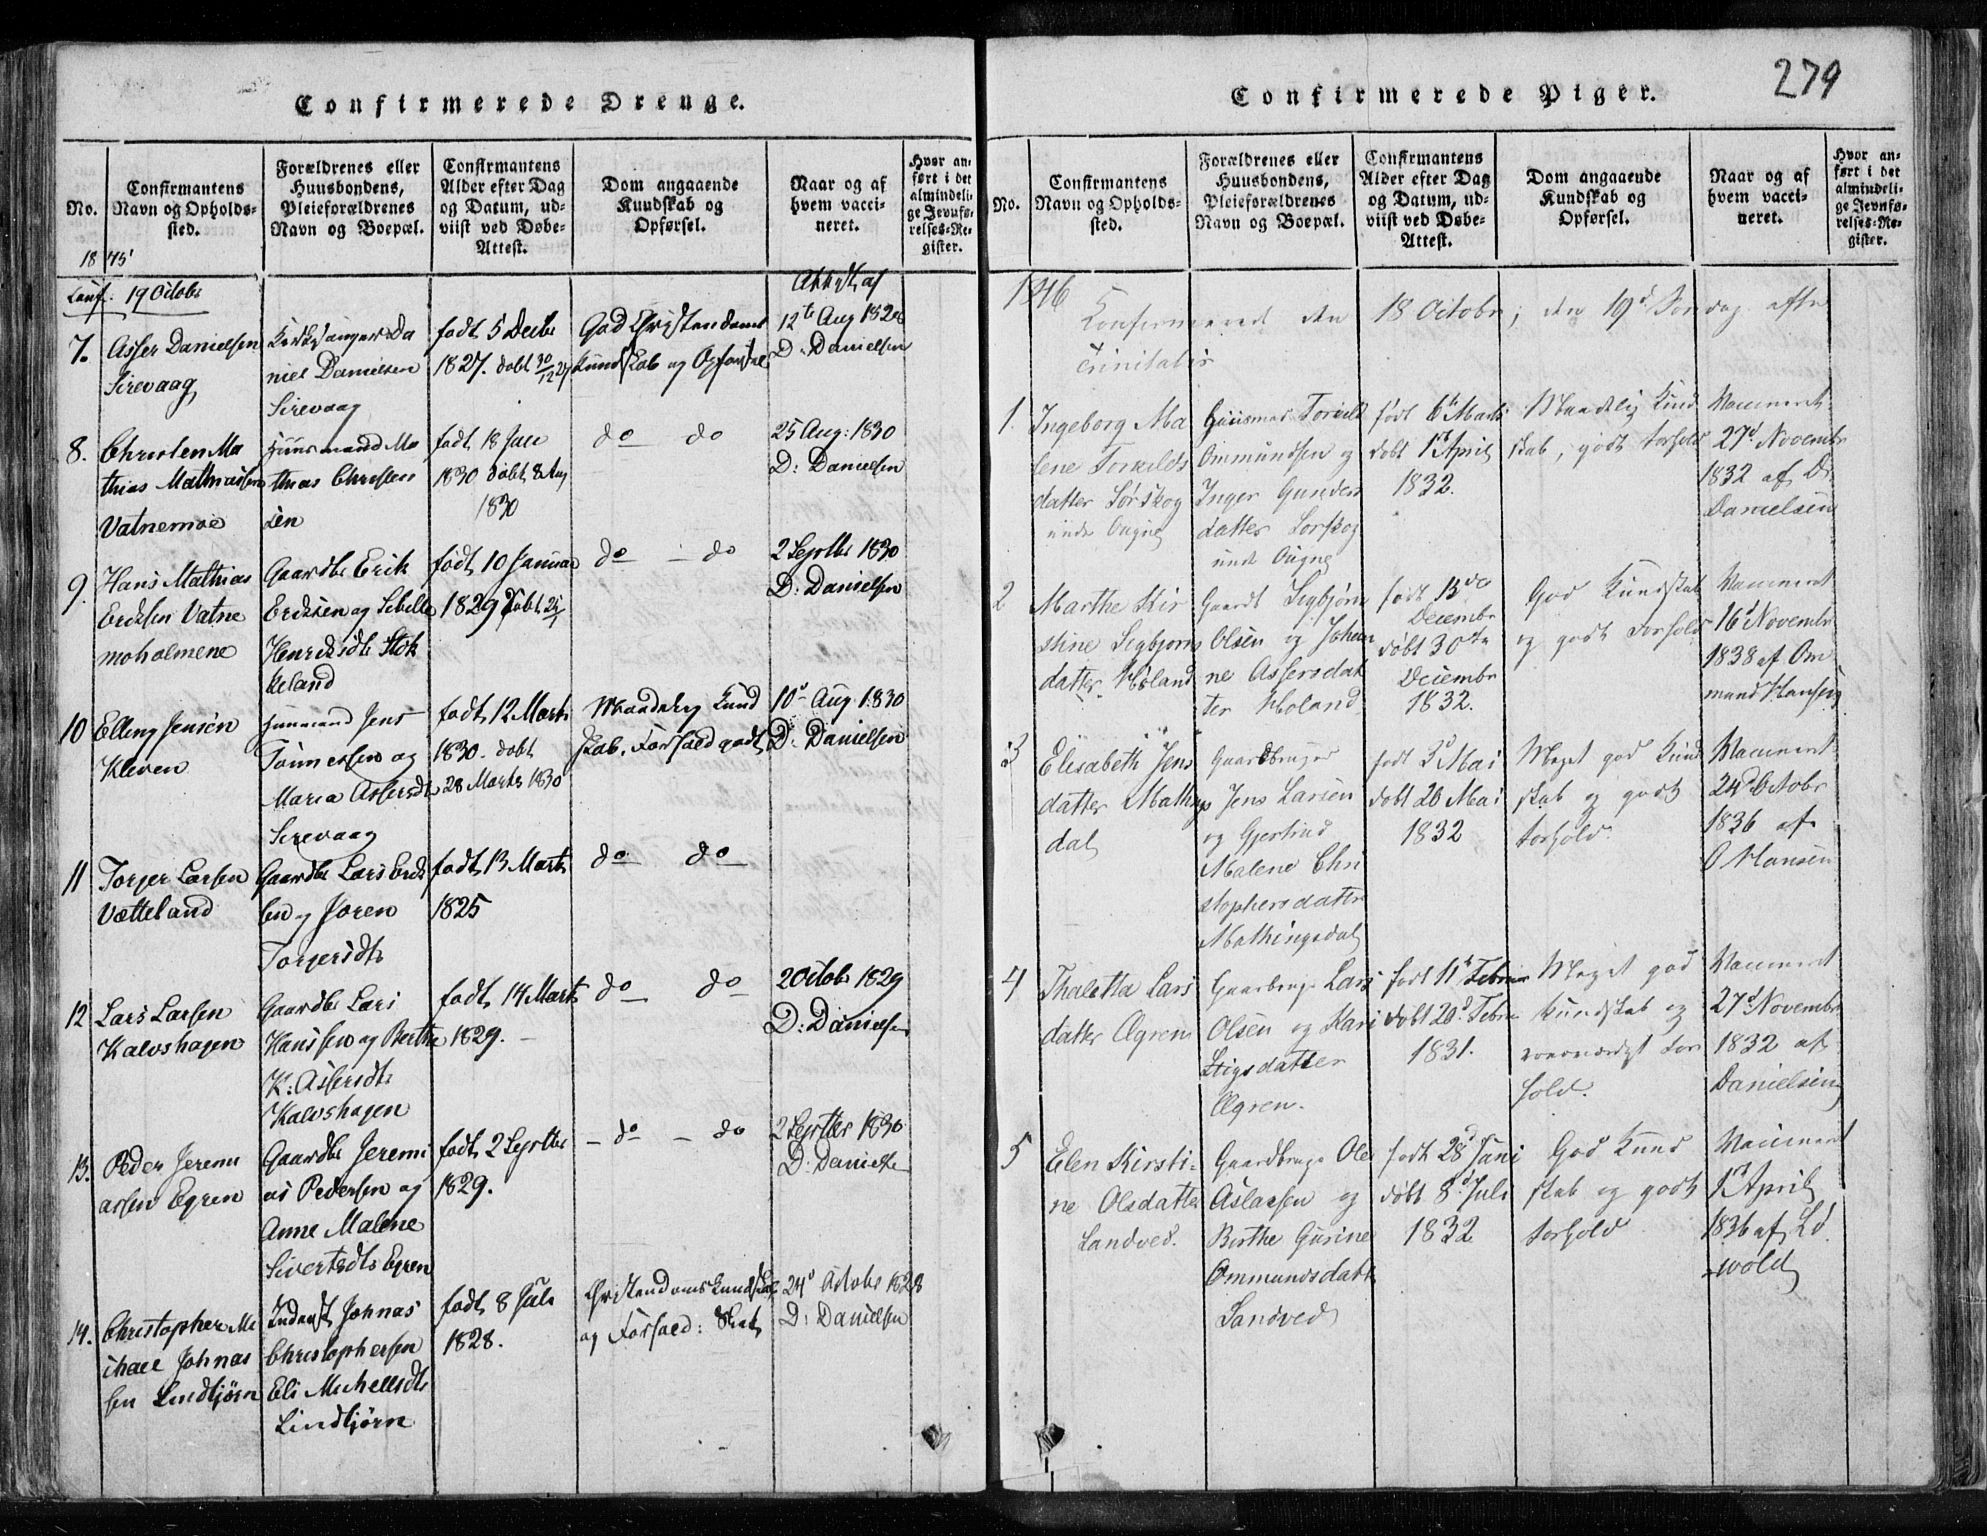 Confirmerede Drenge.
No.
Confirmantens
Navn og Opholds-
sted.
Forældrenes eller
Huusbondens,
Pleieforældrenes
Navn og Boepæl.
Confirmantens
Alder efter Dag
og Datum, ud-
viist ved Døbe-
Attest.
Dom angaaende
Kundskab og
Opførsel.
Naar og af
hvem vacci-
neret.
Hvor an-
ført i det
almindeli-
ge Jevnfø-
relses-Re-
gister.
1845
Conf. 19 Octobr
7. Asser Danielsen
Sirevaag
Kirkesanger Da
niel Danielsen
Sirevaag
født 5 Decbr
1827. døbt 30/12 27
God Christendoms
Kundskab og Opførsel
Attest af
12te Aug 1828
D. Danielsen
8. Christen Ma
thias Mathiassen
Vatnemoe
Huusmand Ma
thias Christen
sen
født 18 Juli
1830 døbt 8 Aug
1830
do do
25 Aug: 1830
D: Danielsen
9. Hans Mathias
Eriksen Vatne
moholmene
Gaardbr Erik
Eriksen og Sibille
Henriksdtr Stok
keland
født 10 Januar
1829 døbt 25/1
do - do
2 Septbr 1830
D: Danielsen
10 Elling Jensen
Kleven
Huusmand Jens
Tønnessen og
Maria Assersdtr
Sirevaag
født 12 Marts
1830. døbt
28 Marts 1830
Maadelig Kund
skab. Forhold godt
10d Aug 1830
D: Danielsen
11 Torger Larsen
Vætteland
Gaardbr Lars Erik
sen og Joren
Torgersdtr
født 13 Marts
1825
do do
12 Lars Larsen
Kalvshagen
Gaardbr Lars
Hansen og Berthe
K: Assersdtr
Kalvshagen
født 14 Marts
1829.
do do
2 Octob 1829
D: Danielsen
13. Peder Jeremi
assen Egren
Gaardbr Jeremi
as Pedersen og
Anne Malene
Sivertsdtr Egren
født 2 Septbr
1829.
- do - do
2 Septbr 1830
D: Danielsen
14. Christopher Mi
chael Johnas
sen Lindtjørn
Inderst Johnas
Christophersen
Eli Michelsdtr
Lindtjørn
født 8 Juli
1828.
Christendomskundskab
og Forhold: Slet
24d Octobr 1828
D: Danielsen
279
Confirmerede Piger.
No.
Confirmantens
Navn og Opholds-
sted.
Forældrenes eller
Huusbondens,
Pleieforældrenes
Navn og Boepæl.
Confirmantens
Alder efter Dag
og Datum, ud-
viist ved Døbe-
Attest.
Dom angaaende
Kundskab og
Opførsel.
Naar og af
hvem vacci-
neret.
Hvor an-
ført i det
almindeli-
ge Jevnfø-
relses-Re-
gister.
1846
Confirmeret den 18 Octobr, den 19d Søndag efter
Trinitatis
1. Ingeborg Ma
lene Torkilds
datter Sørskog
under Ougne
Huusmand Torkild
Ommundsen og
Inger Gunders
datter Sorskog
und Ougne
født 6te Marts
døbt 1st April
1832.
Maadelig Kund
skab, godt Forhold
Vaccineret
27d Novembr
1832 af D.
Danielsen
2 Marthe Kir
stine Segbjørns
datter Høland
Gaardb Segbjørn
Olsen og Johan
ne Assersdat
ter Holand
født 13de
Decembr
døbt 30te
Decembr
1832.
God Kundskab
og godt Forhold
Vaccineret
16d Novembr
1838 af Om
mund Hansen
3 Elisabeth Jens
datter Mathings
dal
Gaardbruger
Jens Larsen
og Gjertrud
Malene Chri
stophersdatter
Mathingsdal
født 3d Mai
døbt 20 Mai
1832
Meget god Kund
skab og godt
Forhold
Vaccineret
24d Octobr
1836 af
O Hansen
4 Thaletta Lars
datter Ægren
Gaardbruger Lars
Olsen og Kari
Stigsdatter
Ægren.
født 11te Febru
døbt 20d Febru
1831.
Meget god
Kundskab og
roesværdigt For
hold.
Vaccineret
27d Novembr
1832 af
Danielsen
5 Elen Kirsti-
ne Olsdatter
Sandved.
Gaardbruger Ole
Aslaksen og
Berthe Gurine
Ommundsdatt
Sandved
født 28d Juni
døbt 8d Juli
1832
God Kund
skab og godt
Forhold
Vaccineret
1st April
1836 af Ld.
-wold